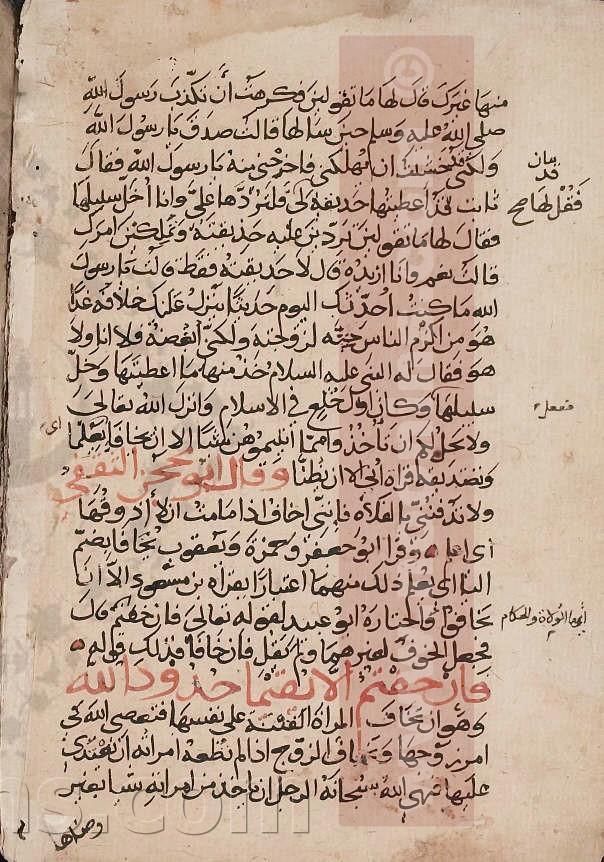 منها غيرك قال لها ما تقولين فكرهت أن تكذب رسول الله
صلى الله عليه وسلم حين سألها قالت صدق يا رسول الله
ولكني قد خشيت ان يهلكني فاخرجني منه يا رسول الله فقال
ثابت قد أعطيتها حديقة لي فلتردها علي وانا أخل سبيلها
فقال لها ما تقولين تردين عليه حديقته وتملكين امرك
قالت نعم وانا ازيده قال لا حديقته فقط قالت يا رسول
الله ما كنت أحدثك اليوم حديثا ينزل عليك خلافه غدا
هو من اكرم الناس لزوجته ولكني ابغضه فلا انا ولا
هو فقال له النبي عليه السلام خذ منها ما اعطيتها وخل
سبيلها وكان اول خلع في الاسلام وانزل الله تعالى
ولا يحل لكم ان تأخذوا مما آتيتموهن شيئا الا ان يخافا يعلما
وقال ابو محجن الثقفي
ولا تدفنني بالفلاة فإنني اخاف اذا ما مت ان لا أذوقها
أي اعلم وقرا ابو جعفر وحمزة ويعقوب يخافا بضم
الياء اي يعلم ذلك منهما اعتبارا بقراة بن مسعود الا أن
يخافوا واختاره ابو عبيد لقوله تعالى فان خفتم قال
فجعل الخوف لغيرهما ولم يقل فان خافا فذلك قوله
فان خفتم الا يقيما حدود الله
وهو ان تخاف المراة على نفسها فتعصي الله في
امر زوجها الزوج اذا لم تطعه امراته ان يعتدي
عليها فنهى الله سبحانه الرجل ان ياخذ من امراته شيئا بغير
بيان
قد
فقل لها صح
أي
ايها الولاة والحكام